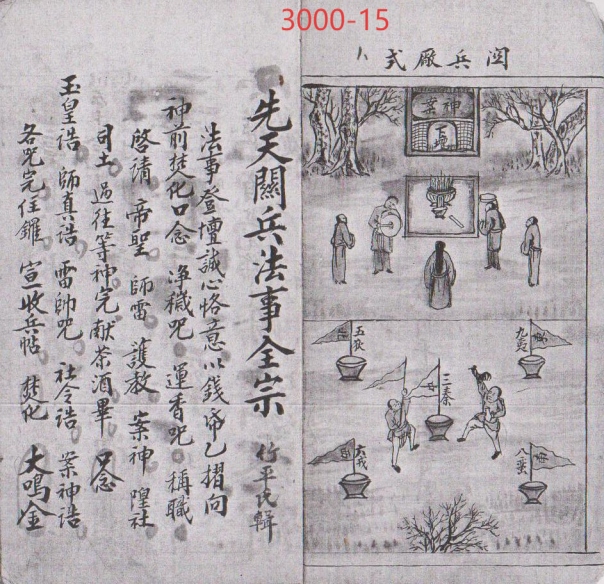 3000-15
関兵厰式
神案
九夷
五狄
三秦
八蠻
六戎
先天關兵法事全宗 竹平氏輯
法事登壇誠心恪意以錢帛乙摺向
神前焚化口念 淨穢咒 運香咒 稱職
啓請 帝聖 師雷 護教 案神 隍社
司土 過往等神完献茶酒畢 口念
玉皇誥 師真誥 雷帥咒 社令誥 案神誥
各咒完住鑼 宣收兵帖 焚化 大鳴金